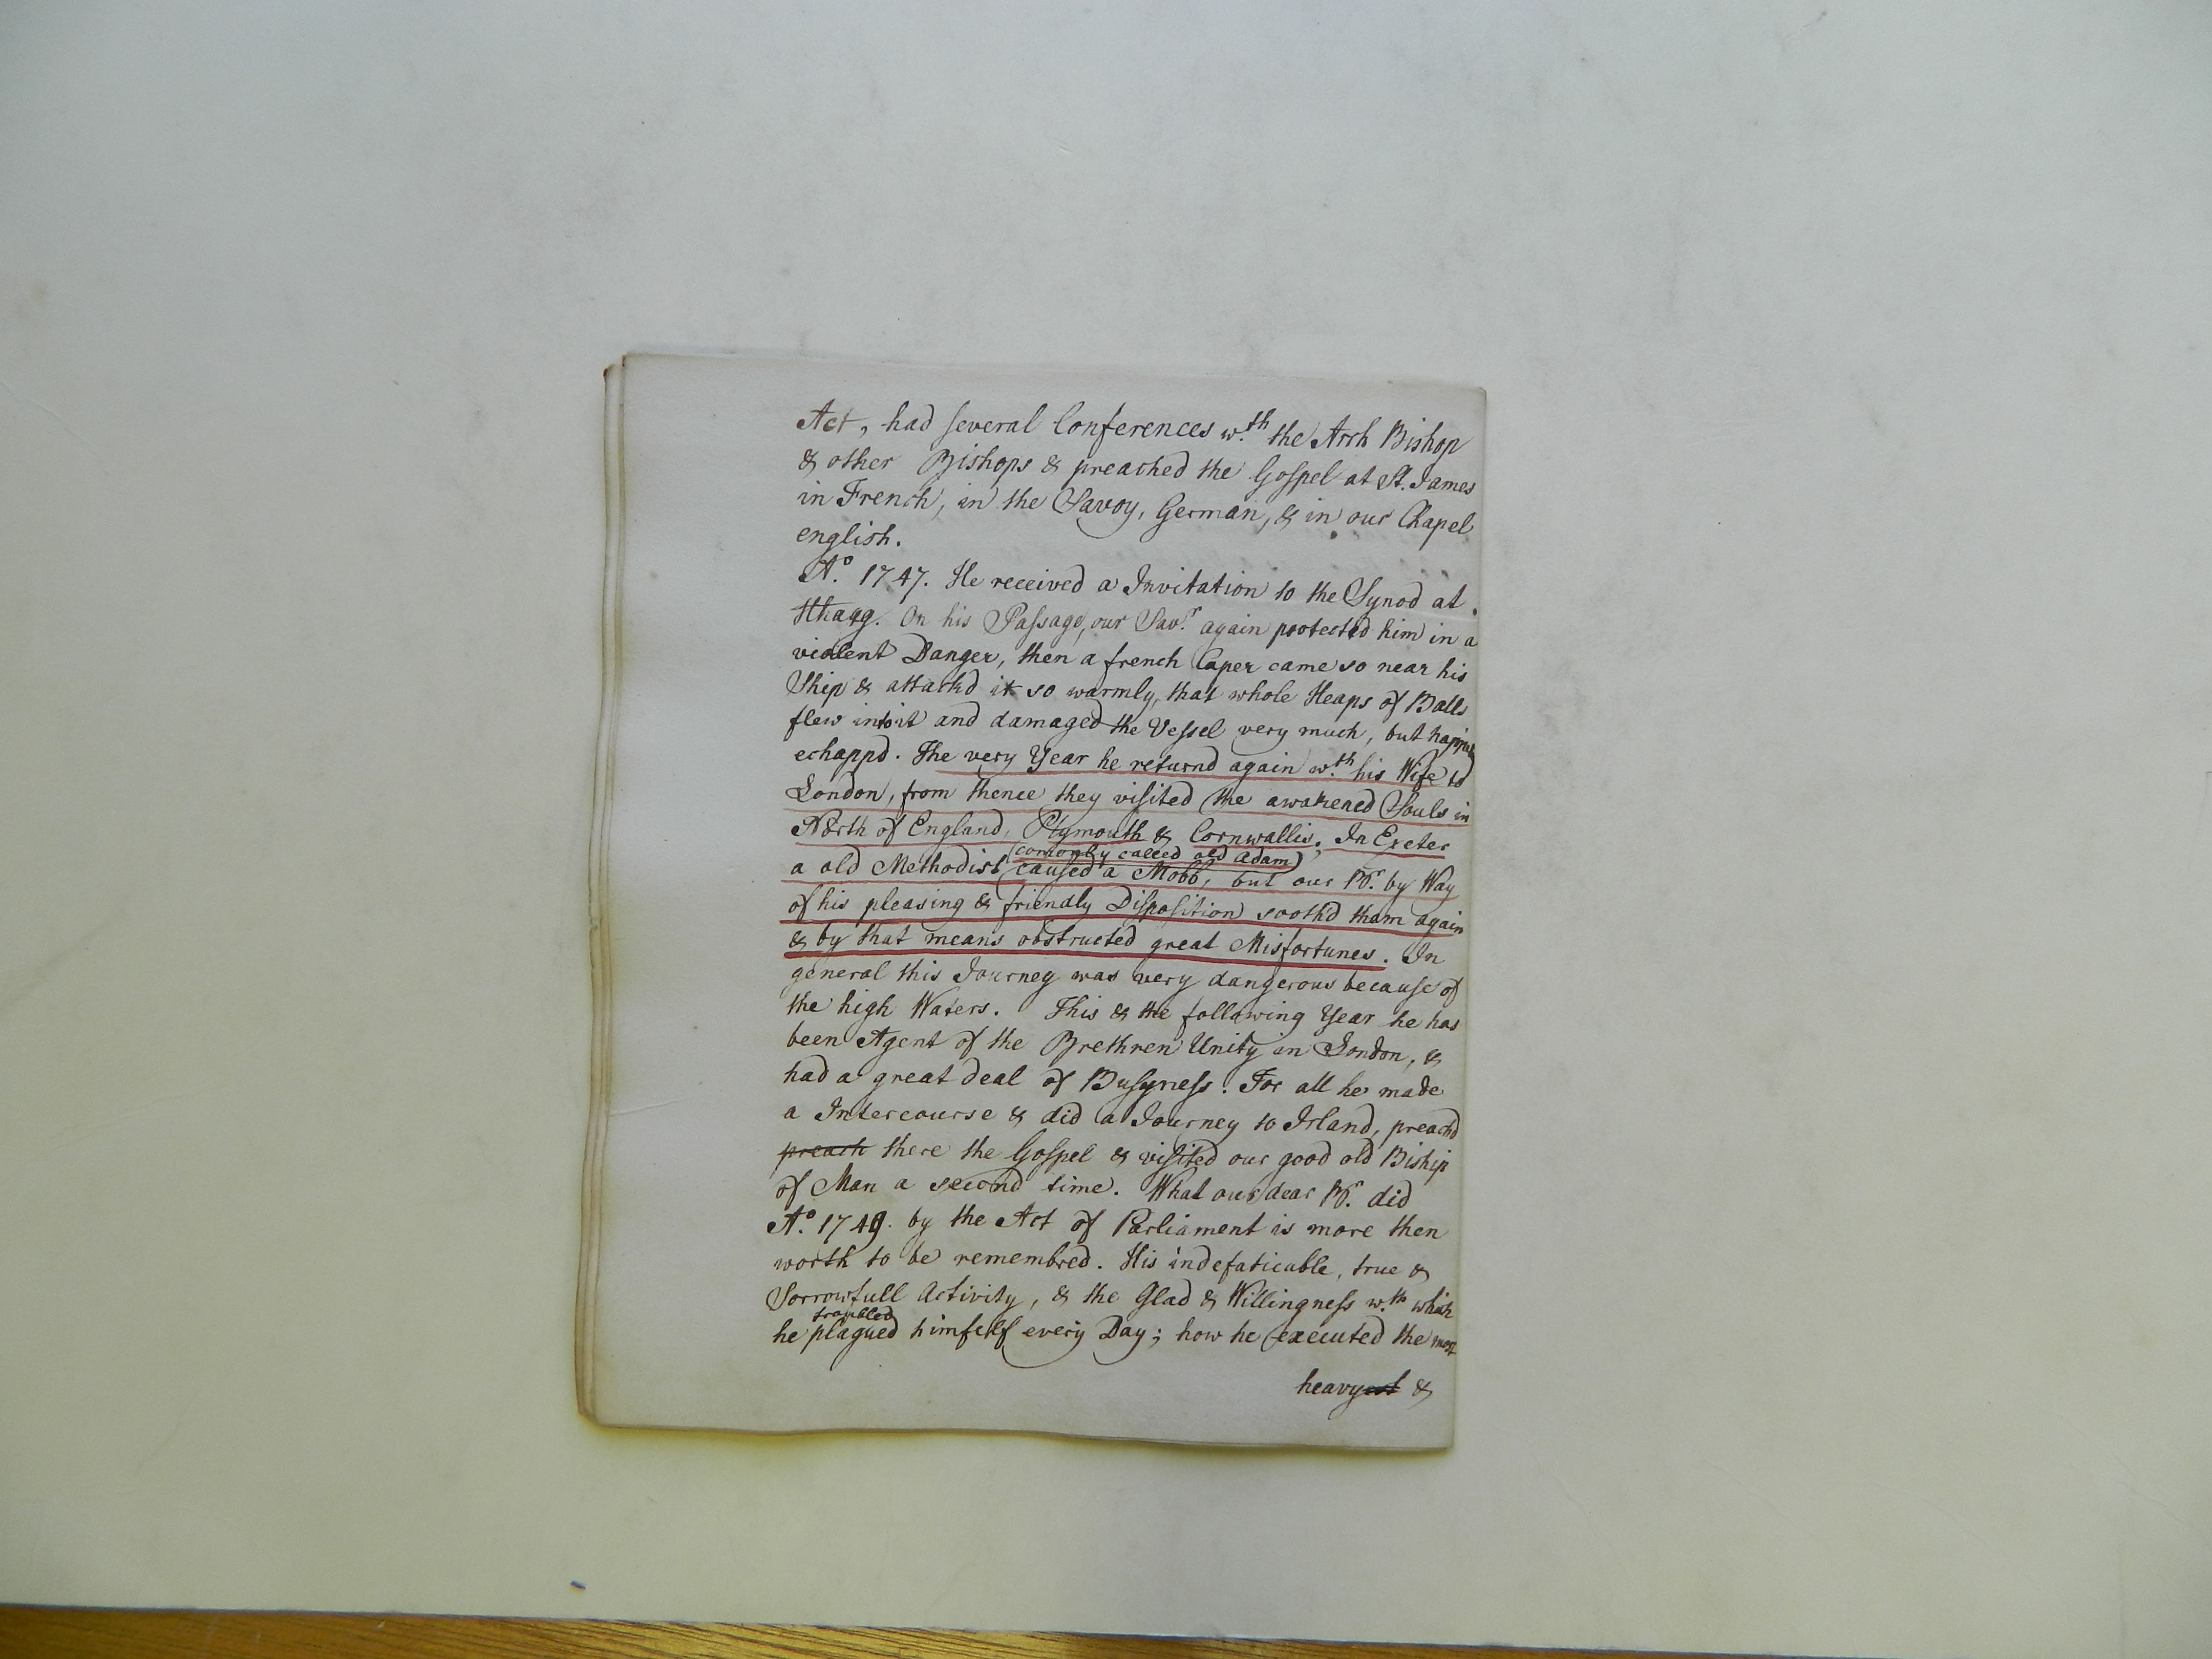 Act, had several Conferences w.th the Arch Bishop
& other Bishops & preached the Gospel at St. James
in French, in the Savoy, German, & in our Chapel
english.
A.o 1747. He received a Invitation to the Synod at
Hhagg. On his Passage, our Sav.r again protected him in a
violent Danger, then a french Caper came so near his
Ship & attackd it so warmly, that whole Heaps of Balls
flew into it and damaged the Vessel very much, but happily
echappd. The very Year he returnd again w.th his Wife to
London, from thence they visited the awakened Souls in
North of England, Plymouth & Cornwallis. In Exeter
(comonly called old Adam)
a old Methodist caused a Mobb, but our Br. by Way
of his pleasing & friendly Disposition sooth'd tham again
& by that means obstructed great Misfortunes. In
general this Journey was very dangerous because of
the high Waters. This & the following Year he has
been Agent of the Brethren Unity in London, &
had a great deal of Busyness. For all he made
a Intercourse & did a Journey to Irland, preachd
preach there the Gospel & visited our good old Biship
of Man a second time. What our dear Br. did
A.o 1749. by the Act of Parliament is more then
worth to be remembred. His indefaticable, true &
Sorrowfull Activity, & the Glad & Willingness w.th which
troubled
he plagued himself every Day; how he executed the most
heavyest &